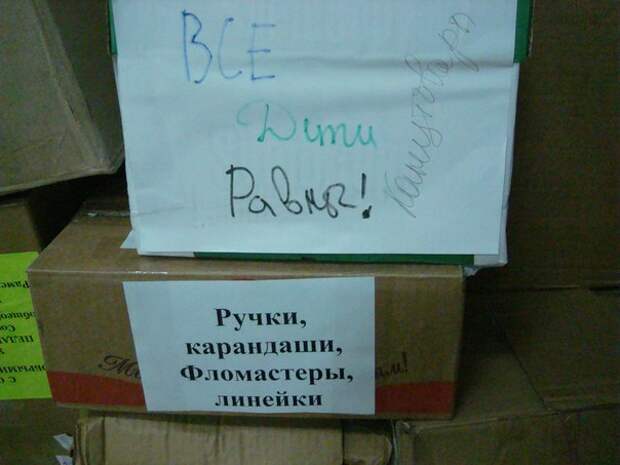 ВСЕ
Дети
Равны!
Канцтовары
Ручки,
карандаши,
Фломастеры,
линейки
ам!